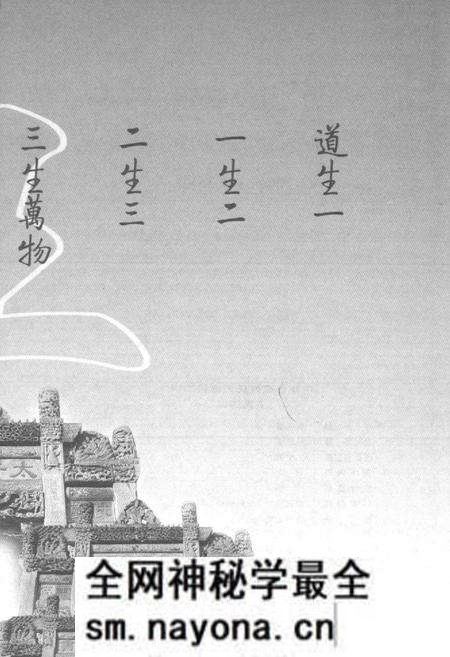 道生一
一生二
二生三
三生萬物
太
全网神秘学最全
sm.nayona.cn